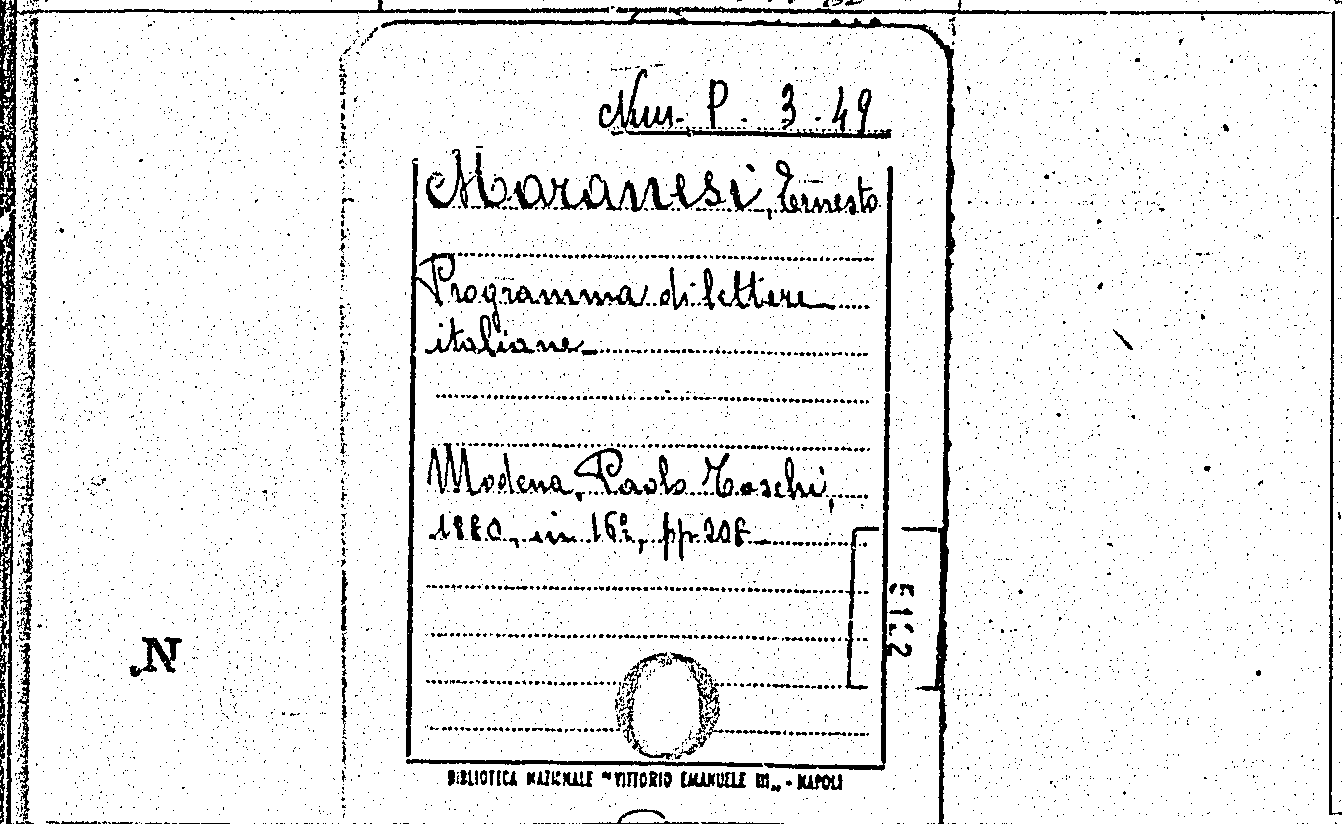 Num. P. 3.49
Maranesi, Ernesto
Programma di lettere
italiane
Modena, Paolo Toschi,
1880, in 16º, pp 208
N
BIBLIOTECA NAZIONALE "VITTORIO EMANUELE III„ - NAPOLI